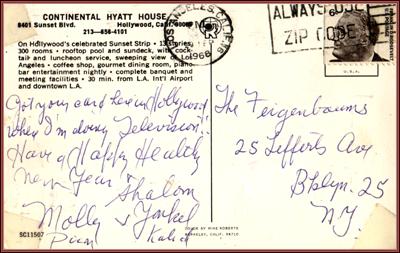 CONTINENTAL HYATT HOUSE
8401 Sunset Blvd. Hollywood, Calif. 90069
213-656-4101
On Hollywood's celebrated Sunset Strip • 13 stories,
300 rooms • rooftop pool and sundeck, with cock-
tail and luncheon service, sweeping view of Los
Angeles • coffee shop, gourmet dining room, piano-
bar entertainment nightly • complete banquet and
meeting facilities • 30 min. from L.A. Int'l Airport
and downtown L.A.
Got your card here in Hollywood
when I'm doing Television!!
Have a Happy Healthy
New Year &
Shalom
Molly & Yankel
Picon Kalich
SC11507
COLOR BY MIKE ROBERTS
BERKELEY, CALIF. 94710
LOS ANGELES, CALIF.
PM
1968
ALWAYS USE
ZIP CODE
6¢
U.S.A.
The Feigenbaums
25 Lefferts Ave
Bklyn. 25
N.Y.